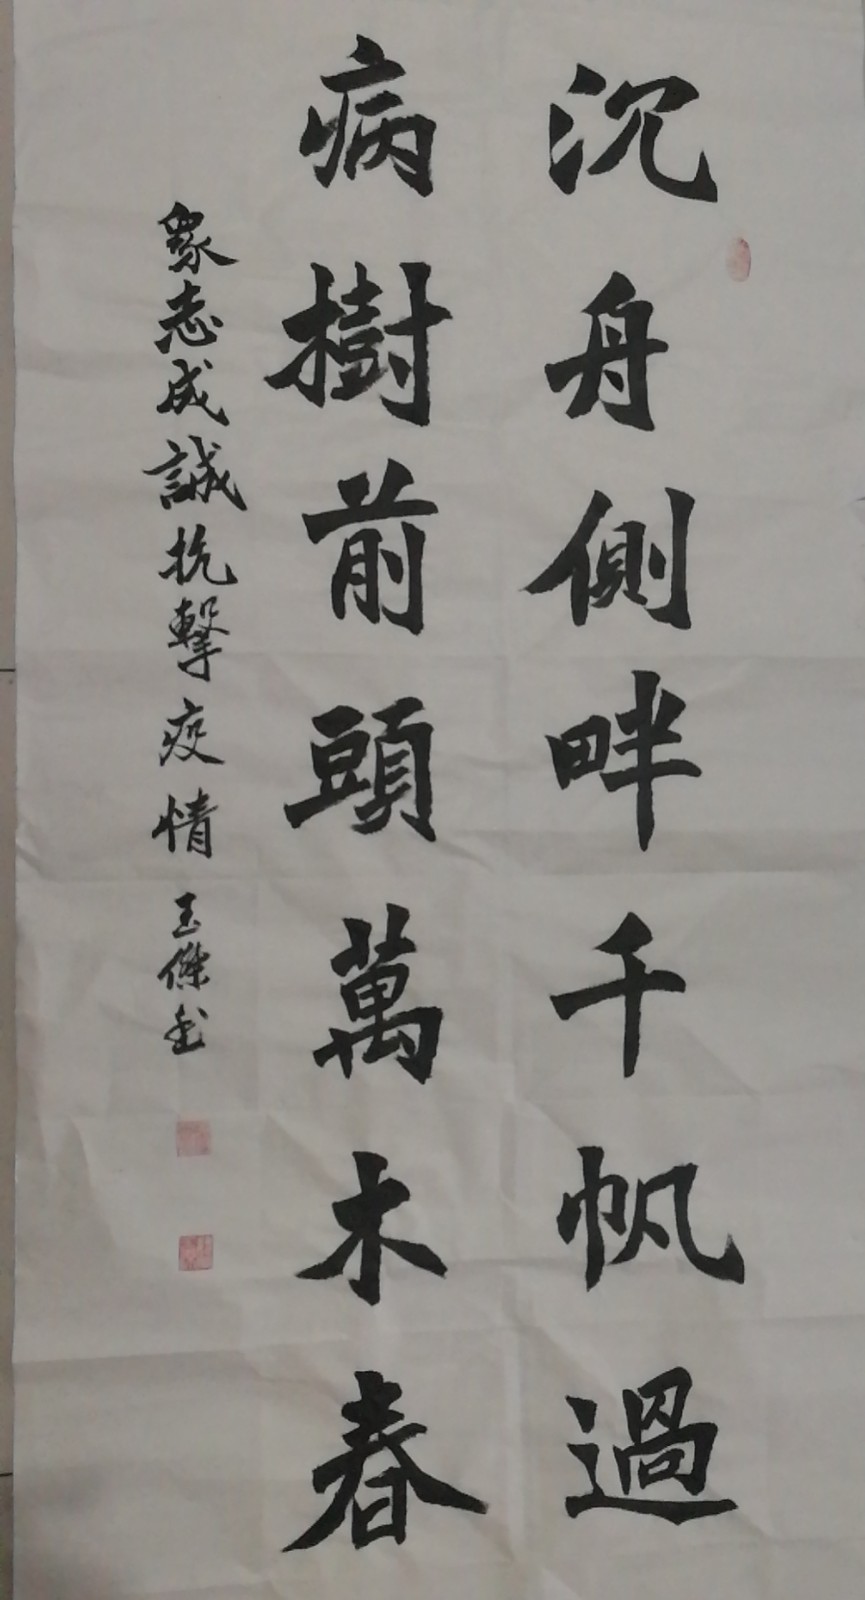 沉舟側畔千帆過
病樹前頭萬木春
衆志成誠抗擊疫情 玉傑書